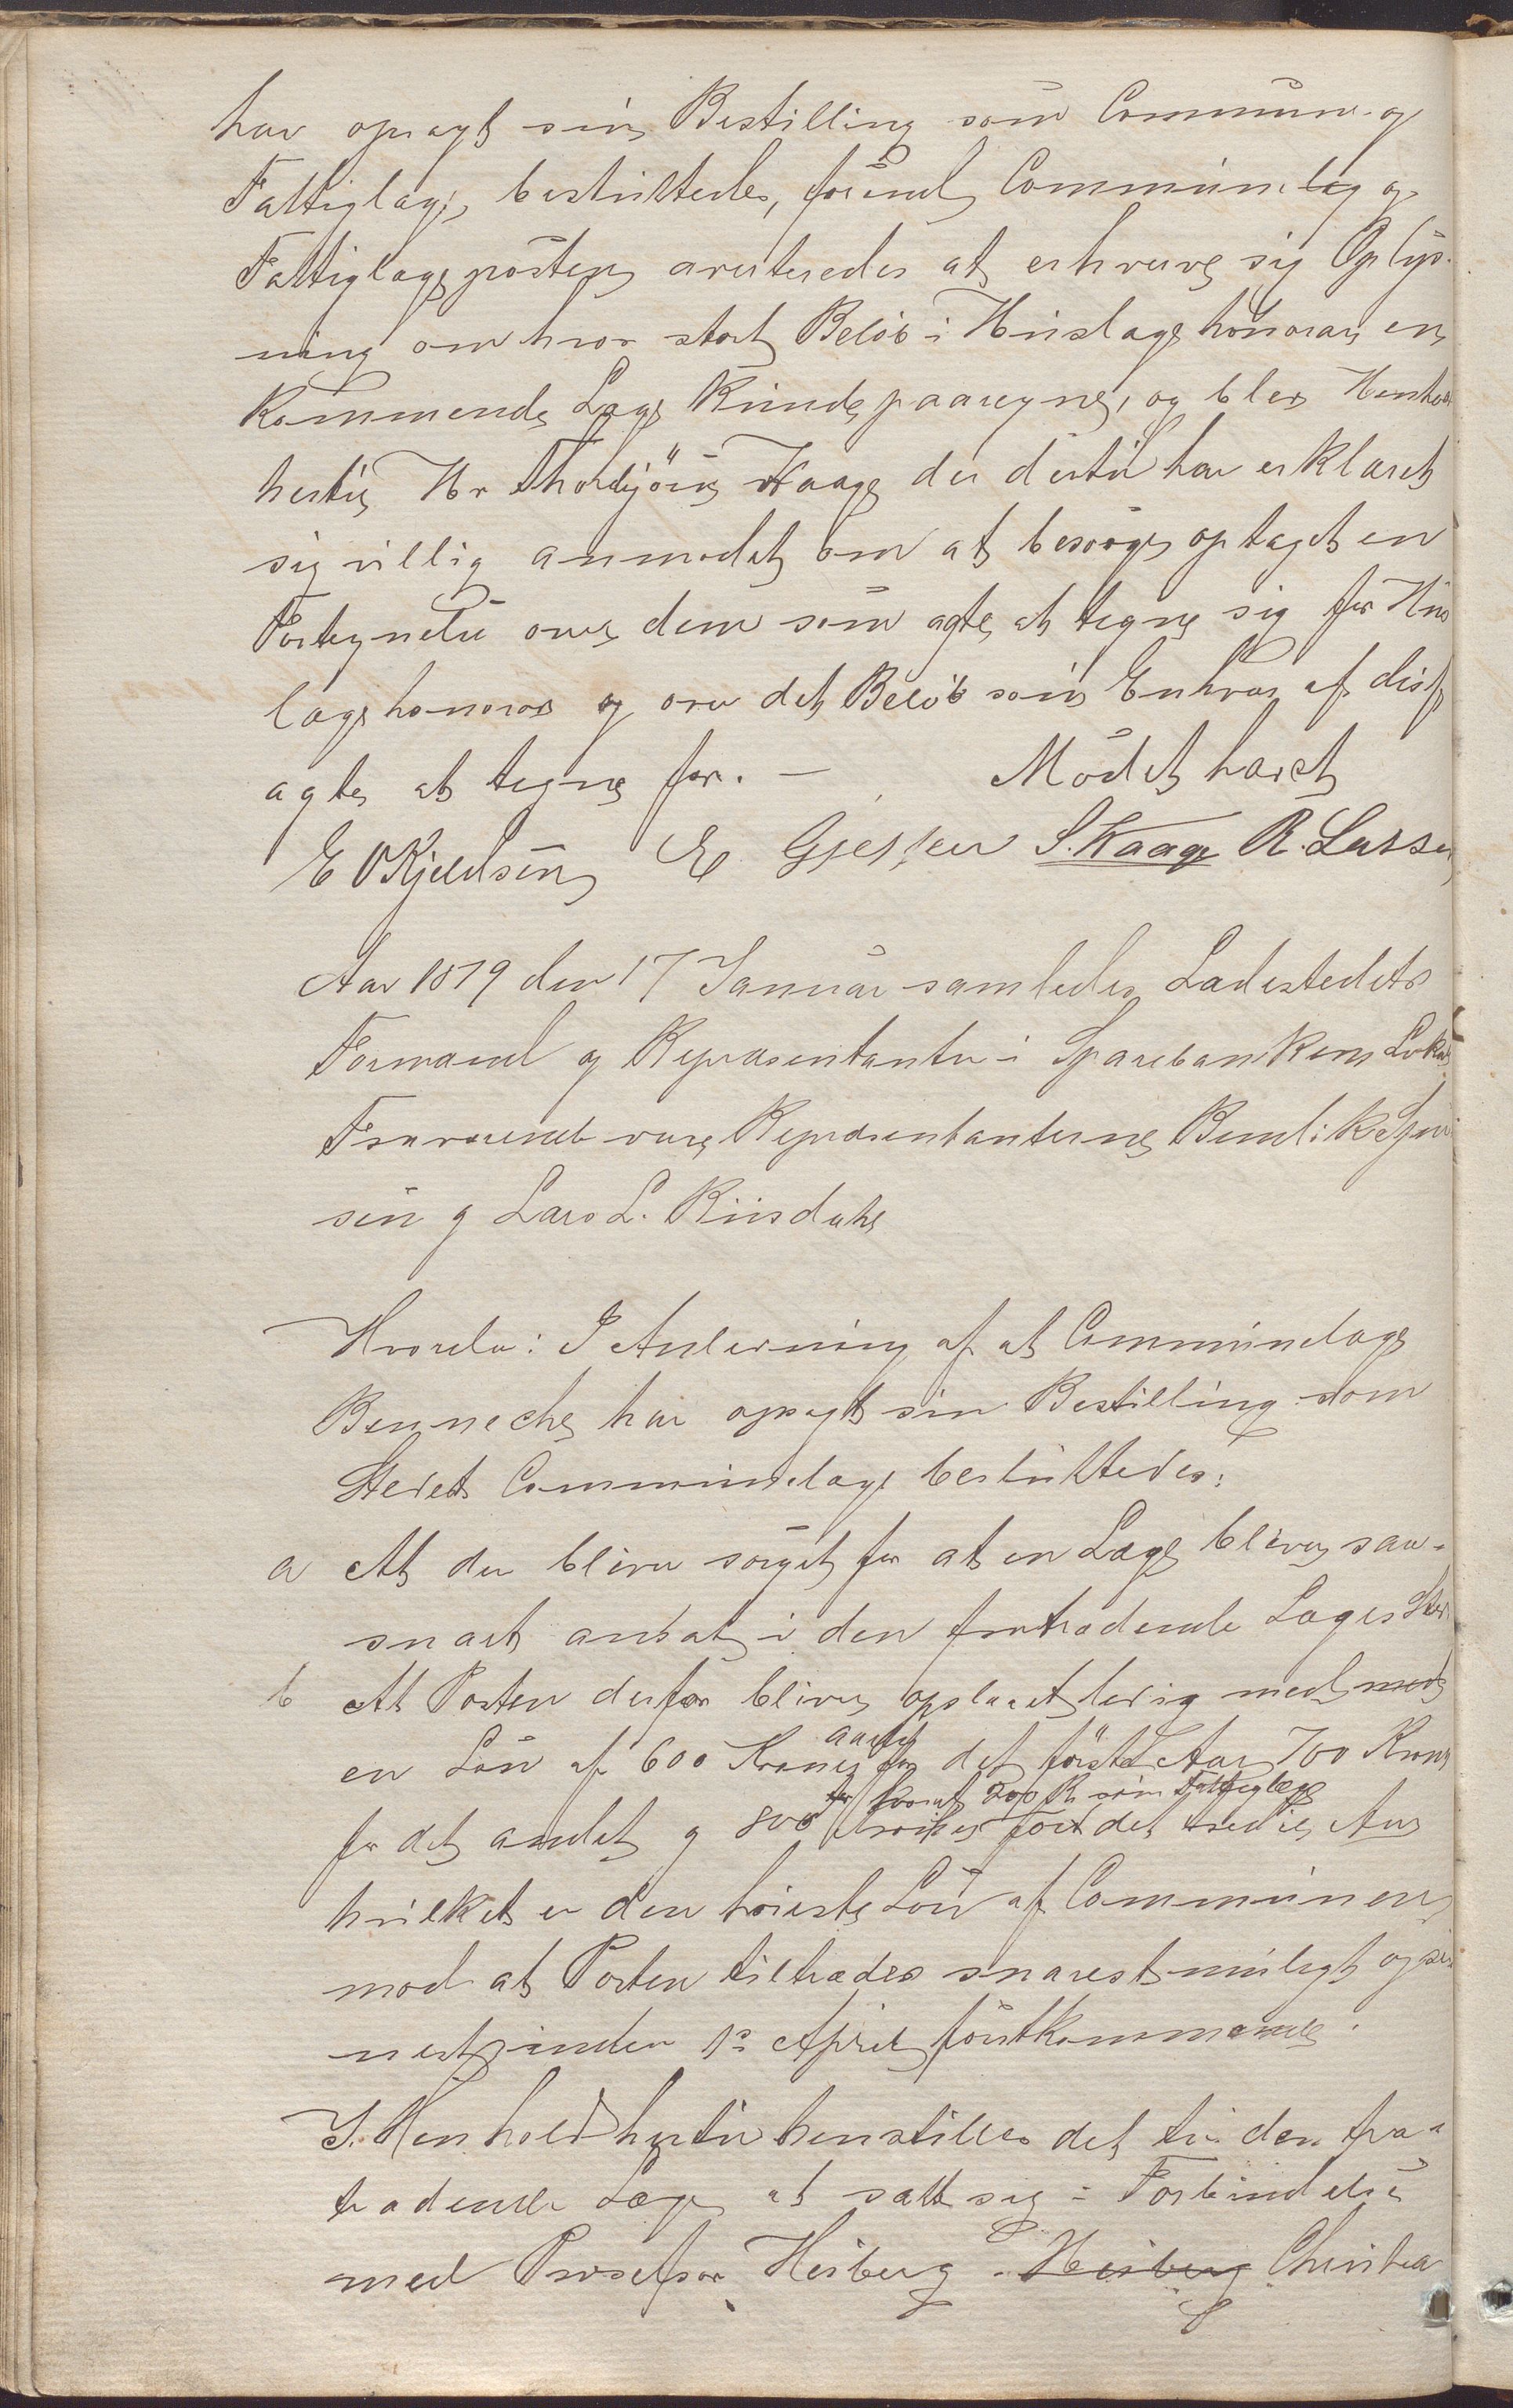 har opsagt sin Bestilling som Commune- og
Fattiglæge, besluttedes, forinden Communelæg og
Fattiglægeposten averteredes at erhverve sig Oplys-
ning om hvor stort Beløb i Huslægehonorar en
Kommende Læge Kunde paaregne, og blev Henhold
hertil Hr Thorbjörn Waage der dertil har erklæret
sig villig anmodet om at besørge optaget en
Fortegnelse over dem som agte at tegne sig for Hus
lægehonorar og over det Beløb som Enhver af disse
agte at tegne for. — Mödet hævet
E O Kjeldsen E Gjessen S. Kaage R. Lassen
Aar 1879 den 17 Januar samledes Ladestedets
Formænd og Repræsentanter i Sparebankens Lokal
Fraværende vare Repræsentanterne Bendik
sen og Lars L. Riisdahl
Hvorda: I Anledning af at Communelæge
Benneche har opsagt sin Bestilling som
Stedets Communelæge besluttedes:
a At der bliver sörget for at en Læge bliver saa-
snart ansat i den fratrædende Læges Sted
b At Posten derfor bliver opslaaet ledig med med
en Lön af 600 Kroner aarlig for det förste Aar 700 Kroner
for det andet og 800 Kroner hvoraf 200 Kr som Fattiglæge for det tredie Aar
hvilket er den höieste Lön af Communen
mod at Posten tiltrædes snarest muligt og se-
nest inden 1ste April förstkommende.
I Henhold hertil henstilles det til den fra-
trædende Læge at sætte sig i Forbindelse
med Professor Heiberg Heiberg Christia